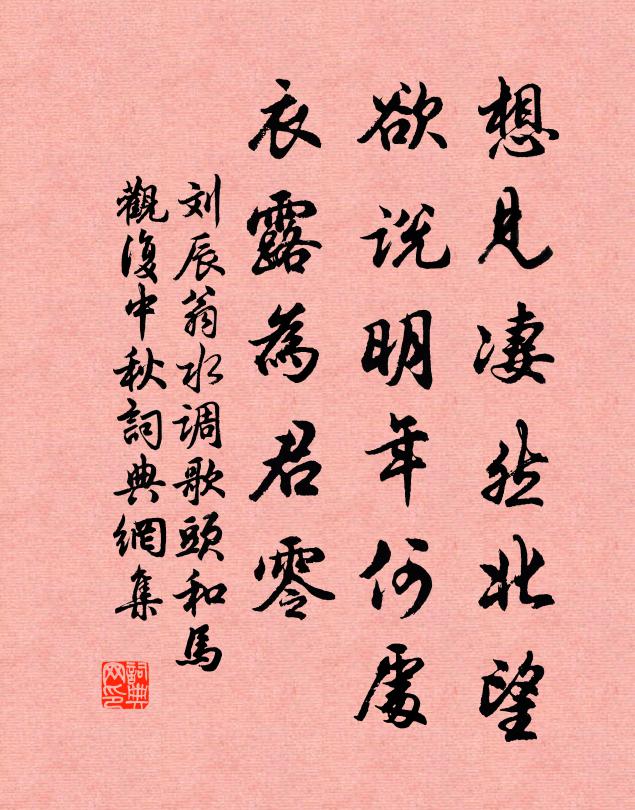 想見凄然北望
欲说明年何處
衣露為君零
刘辰翁水调歌頭和馬
觀復中秋詞典網集
詞典
网印